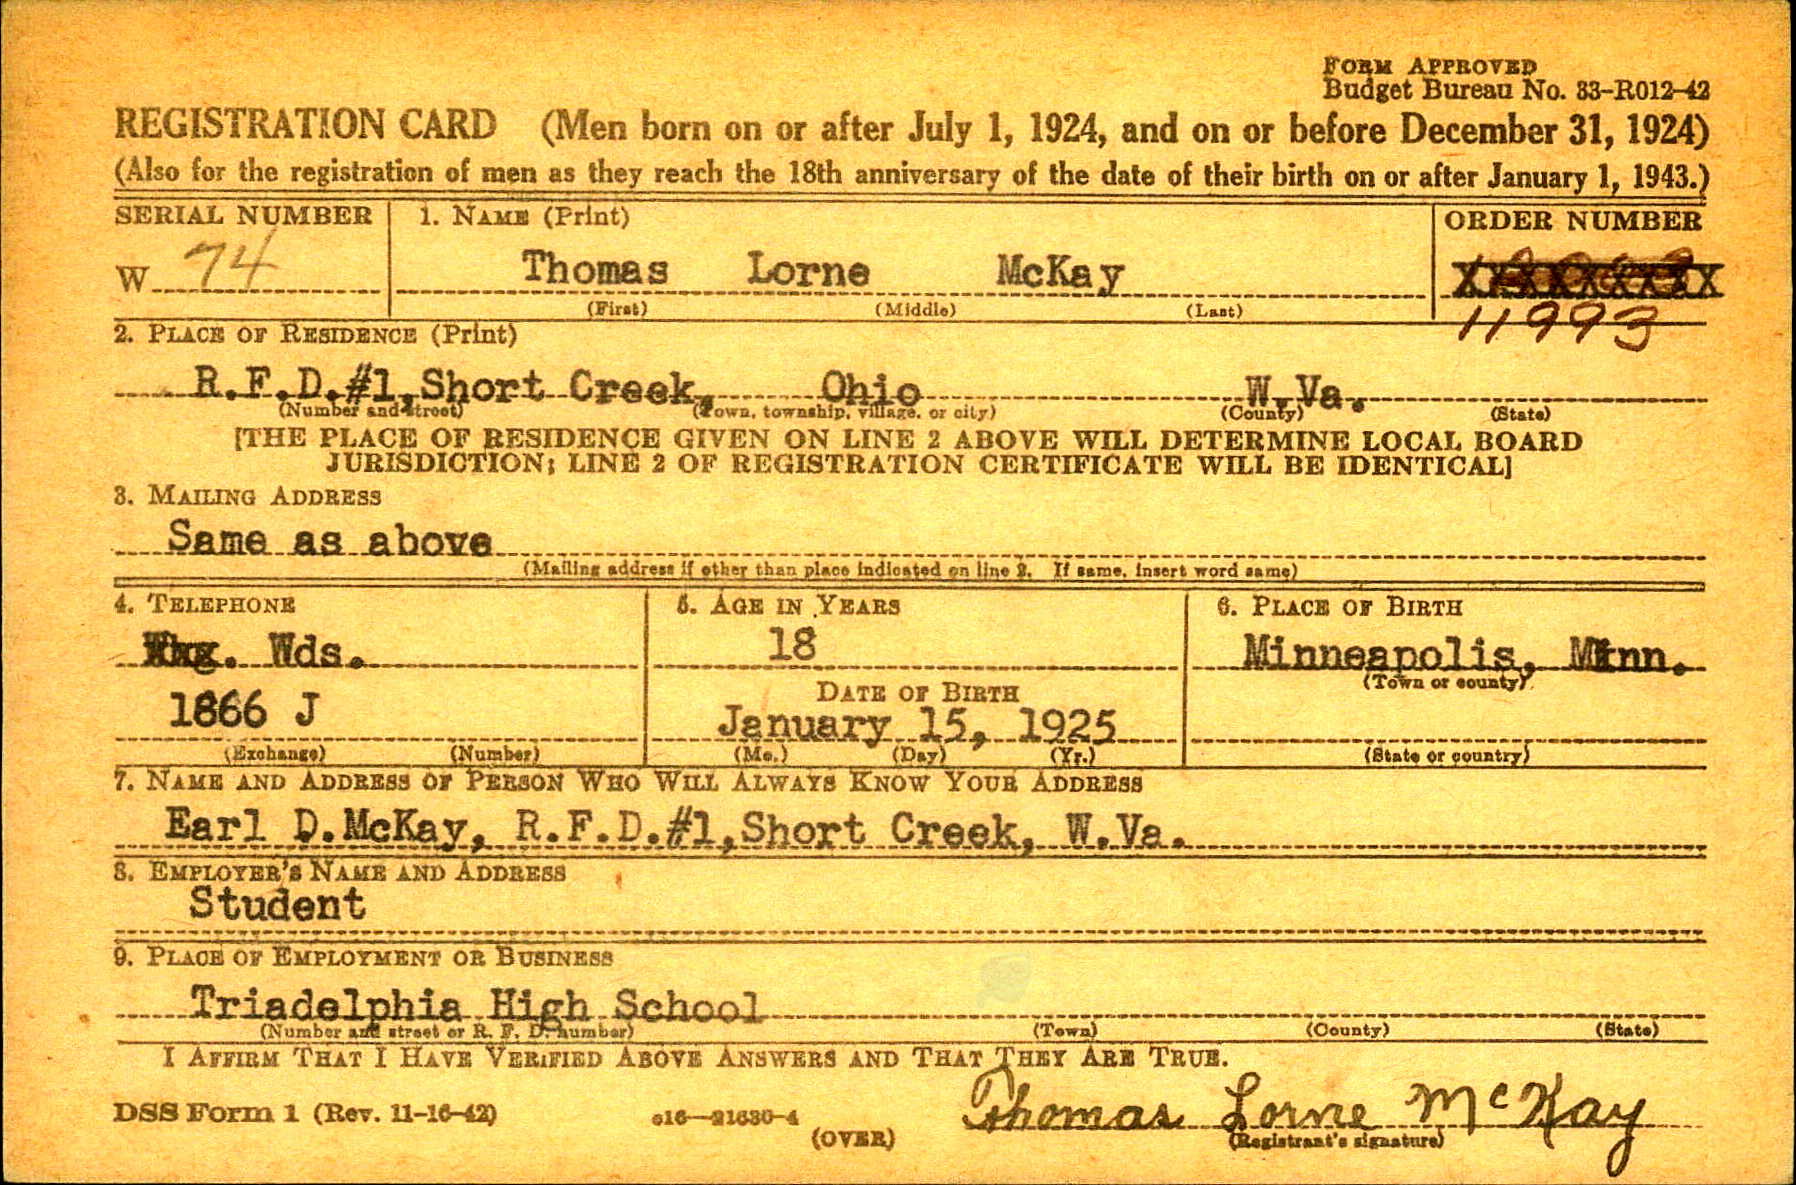 FORM APPROVED
Budget Bureau No. 33-R012-42
REGISTRATION CARD (Men born on or after July 1, 1924, and on or before December 31, 1924)
(Also for the registration of men as they reach the 18th anniversary of the date of their birth on or after January 1, 1943.)
SERIAL NUMBER 1. NAME (Print) ORDER NUMBER
W 74 Thomas Lorne McKay
(First) (Middle) (Last)
11993
2. PLACE OF RESIDENCE (Print)
R.F.D.#1,Short Creek, Ohio W.Va.
(Number and street) (Town, township, village, or city) (County) (State)
[THE PLACE OF RESIDENCE GIVEN ON LINE 2 ABOVE WILL DETERMINE LOCAL BOARD
JURISDICTION; LINE 2 OF REGISTRATION CERTIFICATE WILL BE IDENTICAL]
3. MAILING ADDRESS
Same as above
(Mailing address if other than place indicated on line 2. If same, insert word same)
4. TELEPHONE 5. AGE IN YEARS 6. PLACE OF BIRTH
Wds. 18 Minneapolis, Minn.
(Town or county)
DATE OF BIRTH
1866 J January 15, 1925
(Exchange) (Number) (Mo.) (Day) (Yr.) (State or country)
7. NAME AND ADDRESS OF PERSON WHO WILL ALWAYS KNOW YOUR ADDRESS
Earl D.McKay, R.F.D.#1,Short Creek, W.Va.
8. EMPLOYER'S NAME AND ADDRESS
Student
9. PLACE OF EMPLOYMENT OR BUSINESS
Triadelphia High School
(Number and street or R. F. D. number) (Town) (County) (State)
I AFFIRM THAT I HAVE VERIFIED ABOVE ANSWERS AND THAT THEY ARE TRUE.
DSS Form 1 (Rev. 11-16-42) c16—21630-4 (OVER)
Thomas Lorne McKay
(Registrant's signature)